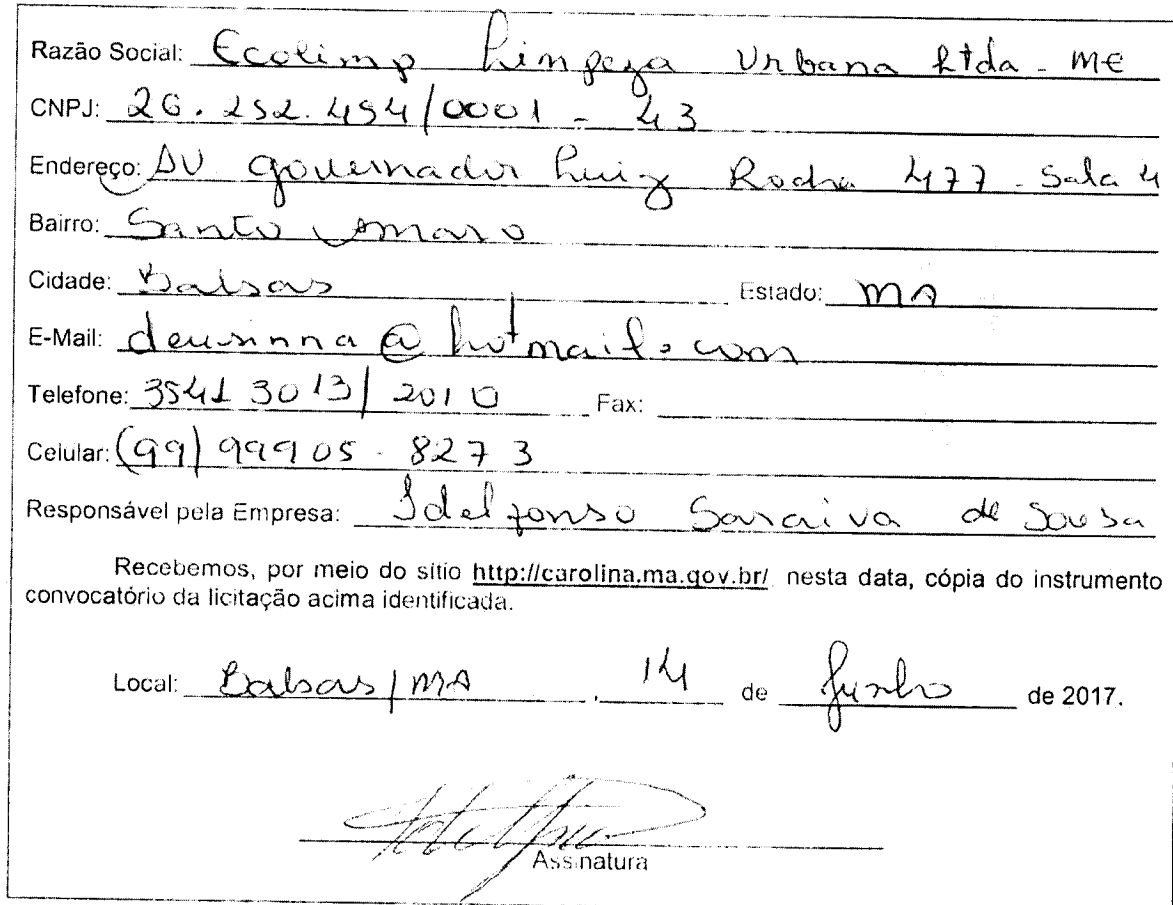 Razão Social: Ecolimp Limpeza Urbana Ltda - ME
CNPJ: 26.252.454/0001 - 43
Endereço: AV governador Luiz Rocha 477 - Sala 4
Bairro: Santo Amaro
Cidade: Balsas Estado: MA
E-Mail: deusinna@hotmail.com
Telefone: 3541 3013/2010 Fax:
Celular: (99) 99905-8273
Responsável pela Empresa: Idelfonso Saraiva de Sousa
Recebemos, por meio do sítio http://carolina.ma.gov.br/ nesta data, cópia do instrumento
convocatório da licitação acima identificada.
Local: Balsas/MA, 14 de Junho de 2017.
Assinatura